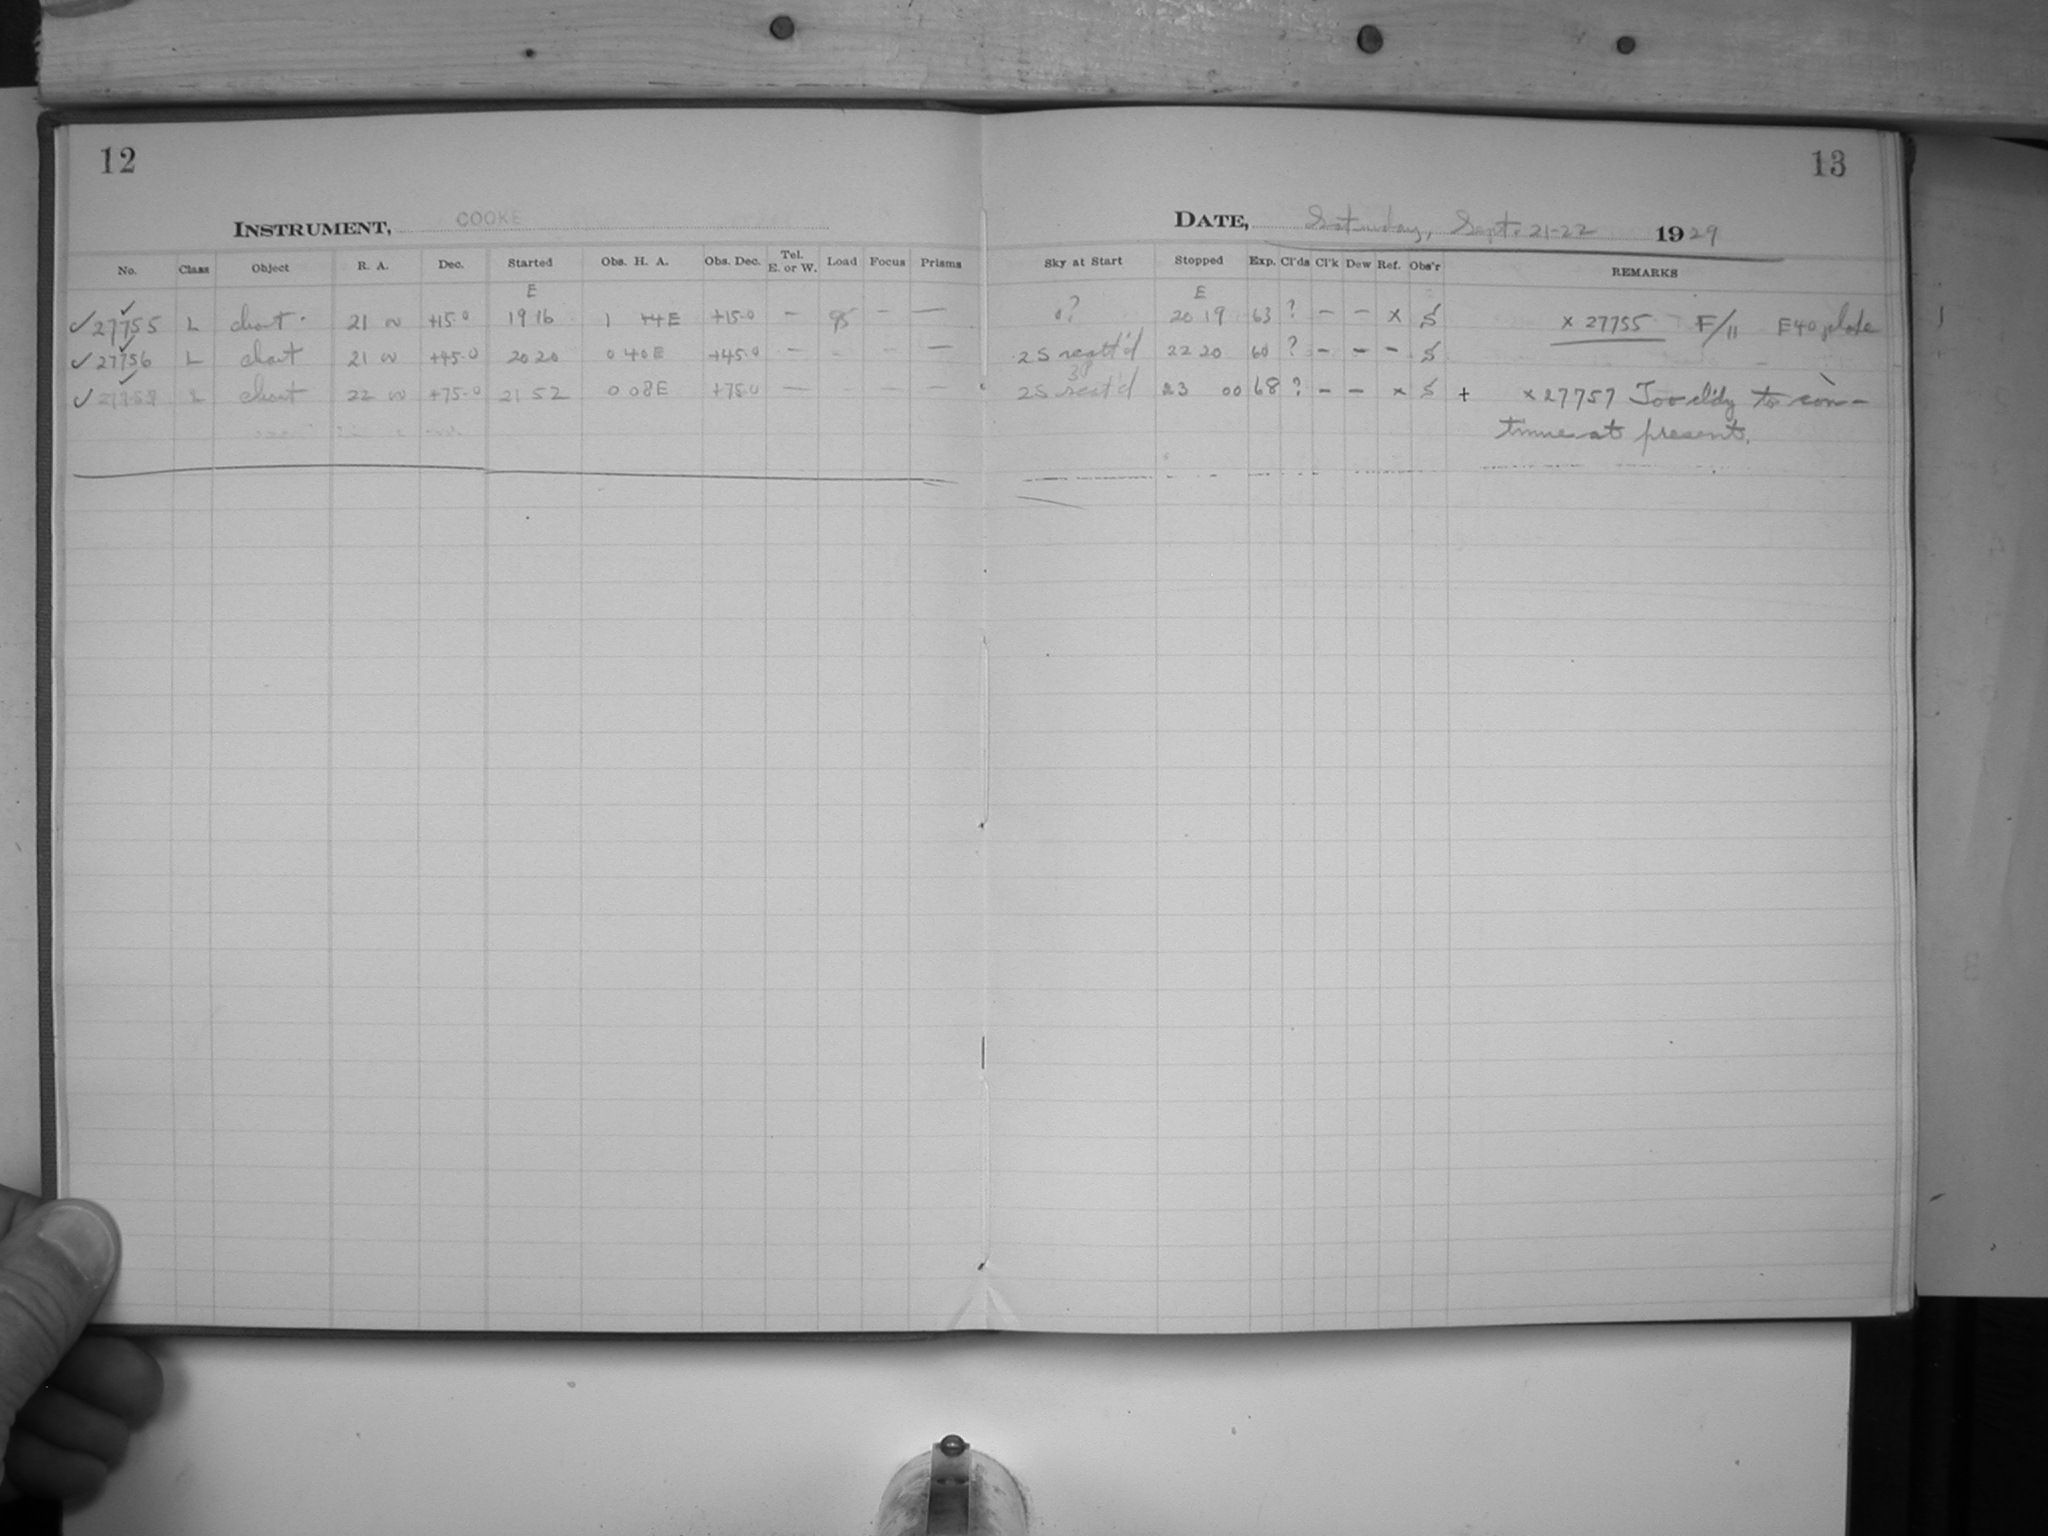 12
13
INSTRUMENT, COOKE
DATE, Saturday, Sept. 21-22 1929
No. Class Object R. A. Dec. Started Obs. H. A. Obs. Dec. Tel. E. or W. Load Focus Prisms Sky at Start Stopped Exp. Cl'ds Cl'k Dew Ref. Obs'r REMARKS
E E
✓ 27755 L chart 21 00 +15.0 19 16 1 44E +15.0 – – — 0? 20 19 63 ? – – x S x 27755 F/11 E40 plate
✓ 27756 L chart 21 00 +45.0 20 20 0 40E +45.0 — – – — 25 scatt'd 22 20 60 ? – – – S
✓ L chart 22 00 +75.0 21 52 0 08E +75.0 — – – — 25 scat'd 23 00 68 ? – – x S + x 27757 Too cl'dy to con-
tinue at present.